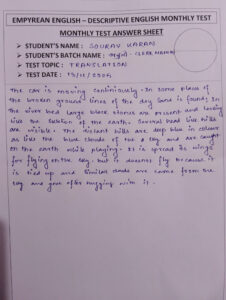 EMPYREAN ENGLISH – DESCRIPTIVE ENGLISH MONTHLY TEST
MONTHLY TEST ANSWER SHEET
➢ STUDENT'S NAME : SOURAV KARAN
➢ STUDENT'S BATCH NAME : (CLERK MAINS)
➢ TEST TOPIC : TRANSLATION
➢ TEST DATE :
The car is moving continiously. In some place of
the broken ground lines of the dry sand is found; In
the river bed large black stones are present and looking
like the skeleton of the earth. Several head like hills
are visible. The distant hills are deep blue in colour
as like the blue clouds of the sky and are caught
on the earth while playing. It is spread its wings
for flying on the sky. but it doesnot fly because it
is tied up and similar clouds are came from the
sky and goes after hugging with it.